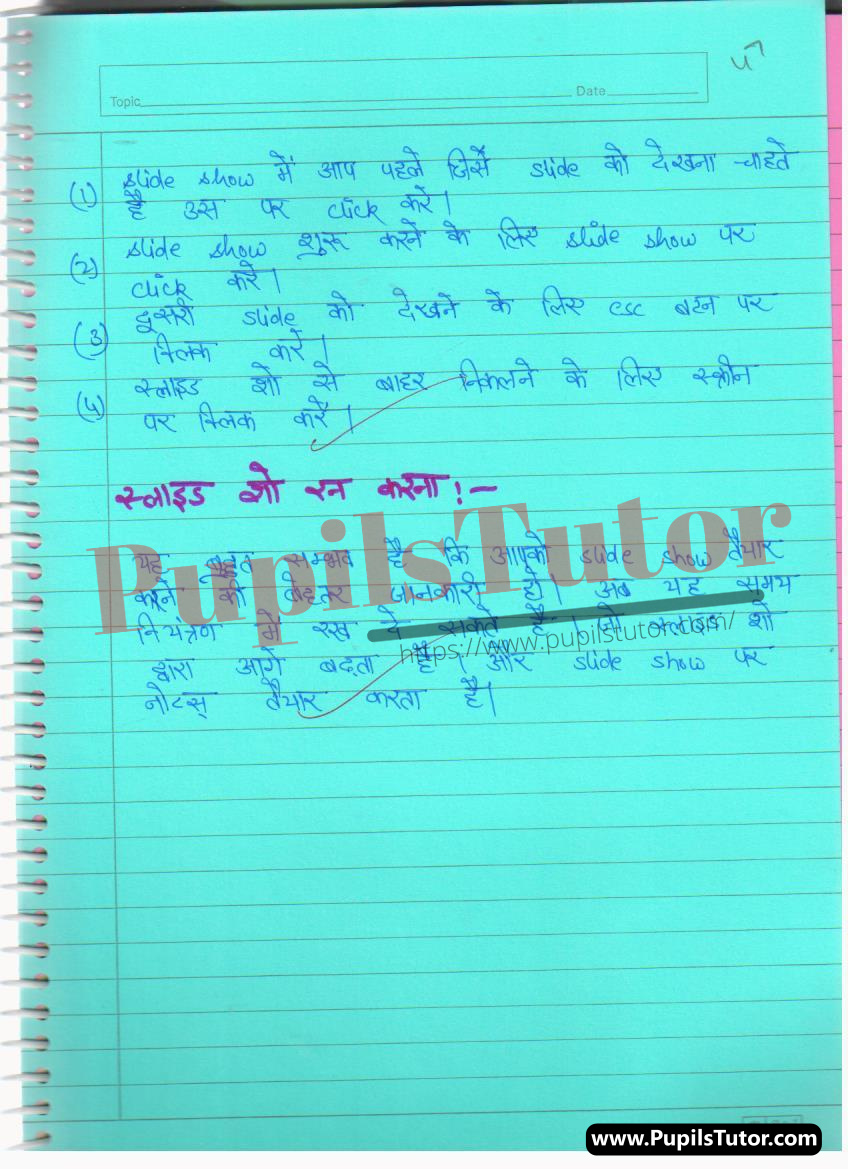 ५७
Topic Date
(1) slide show में आप पहले जिसें slide को देखना चाहते
है उस पर click करे।
(2) slide show शुरू करने के लिए slide show पर
click करे।
(3) दूसरी slide को देखने के लिए esc बटन पर
क्लिक करें।
(4) स्लाइड शो से बाहर निकलने के लिए स्क्रीन
पर क्लिक करें।
स्लाइड शो रन करना:-
PupilsTutor
यह बहुत सम्भव है कि आपको slide show तैयार
करने की बेहतर जानकारी हो। अब यह समय
नियंत्रण में रख दे सकते है। जो स्लाइड शो
https://www.pupilstutor.com/
द्वारा आगे बढ़ता है। और slide show पर
नोटस् तैयार करता है।
www.PupilsTutor.com